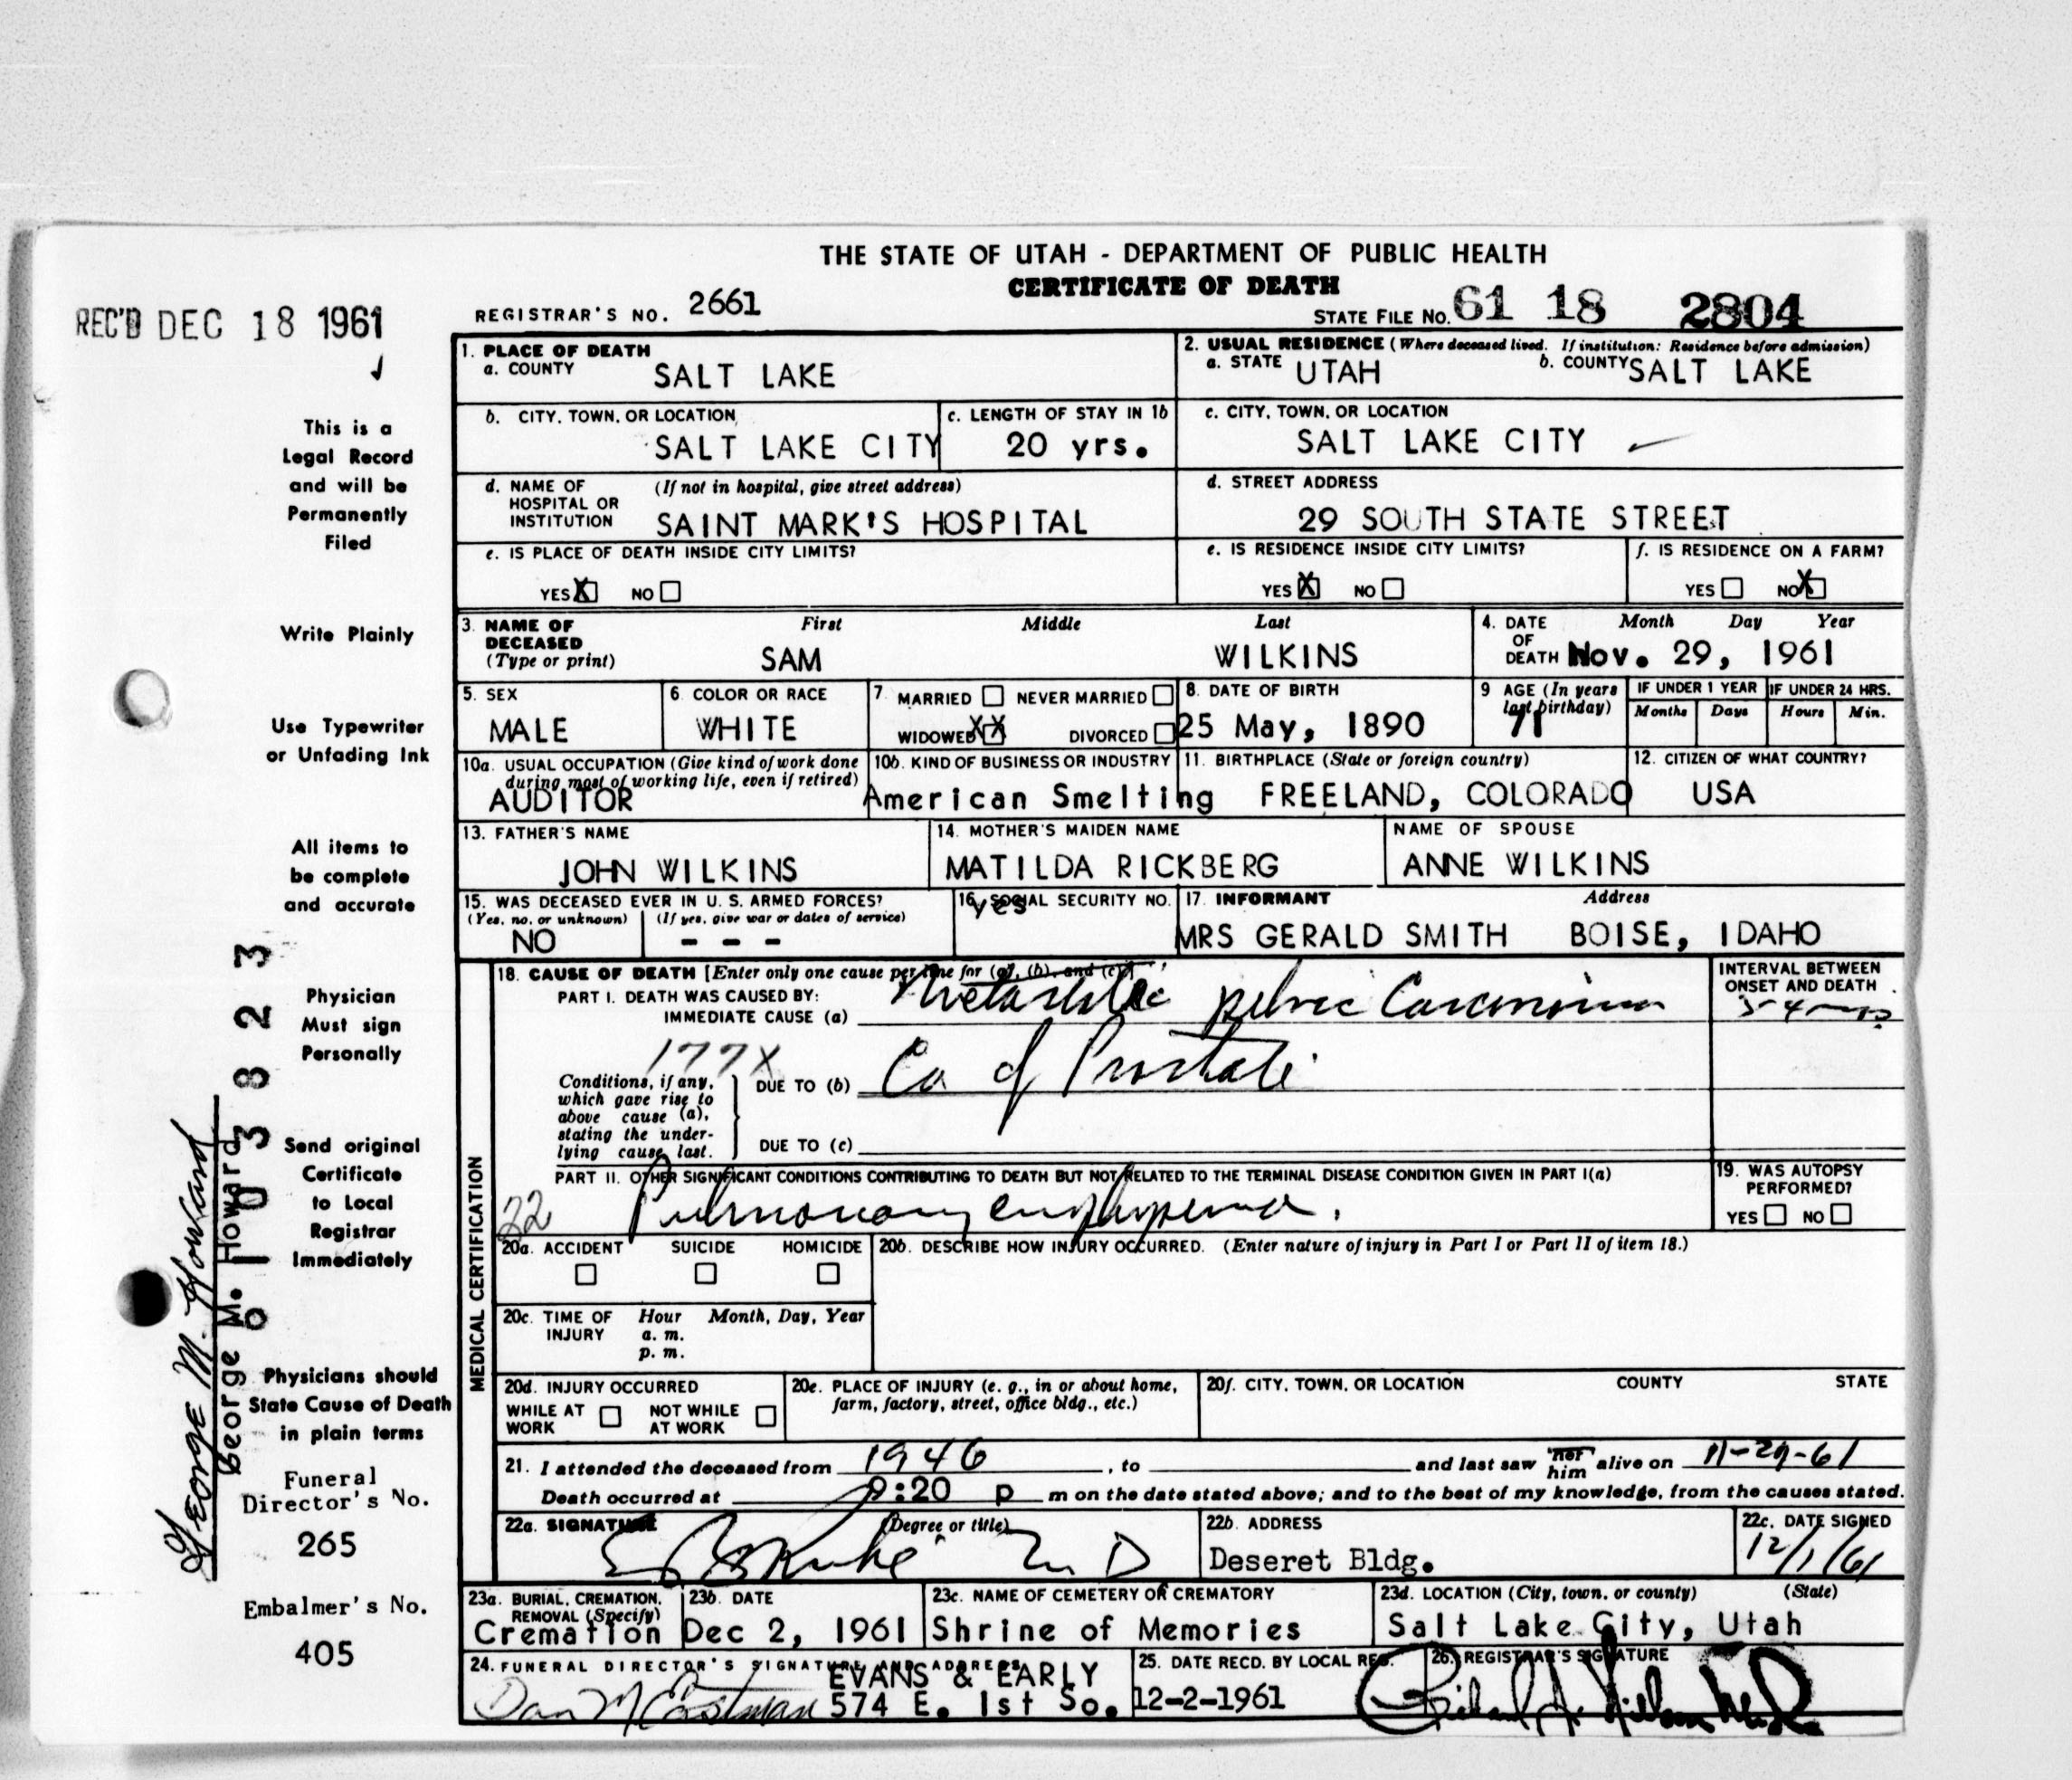 THE STATE OF UTAH - DEPARTMENT OF PUBLIC HEALTH
CERTIFICATE OF DEATH
REC'D DEC 18 1961
REGISTRAR'S NO. 2661
STATE FILE NO. 61 18 2804
1. PLACE OF DEATH
a. COUNTY SALT LAKE
2. USUAL RESIDENCE (Where deceased lived. If institution: Residence before admission)
a. STATE UTAH b. COUNTY SALT LAKE
b. CITY, TOWN, OR LOCATION SALT LAKE CITY
c. LENGTH OF STAY IN 1b 20 yrs.
c. CITY, TOWN, OR LOCATION
SALT LAKE CITY
d. NAME OF HOSPITAL OR INSTITUTION (If not in hospital, give street address)
SAINT MARK'S HOSPITAL
d. STREET ADDRESS
29 SOUTH STATE STREET
e. IS PLACE OF DEATH INSIDE CITY LIMITS?
YES X NO
e. IS RESIDENCE INSIDE CITY LIMITS?
YES X NO
f. IS RESIDENCE ON A FARM?
YES NO X
3. NAME OF DECEASED (Type or print)
First Middle Last
SAM WILKINS
4. DATE OF DEATH Month Day Year
Nov. 29, 1961
5. SEX
MALE
6. COLOR OR RACE
WHITE
7. MARRIED NEVER MARRIED
WIDOWED XX DIVORCED
8. DATE OF BIRTH
25 May, 1890
9 AGE (In years last birthday)
71
IF UNDER 1 YEAR IF UNDER 24 HRS.
Months Days Hours Min.
10a. USUAL OCCUPATION (Give kind of work done during most of working life, even if retired)
AUDITOR
10b. KIND OF BUSINESS OR INDUSTRY
American Smelting
11. BIRTHPLACE (State or foreign country)
FREELAND, COLORADO
12. CITIZEN OF WHAT COUNTRY?
USA
13. FATHER'S NAME
JOHN WILKINS
14. MOTHER'S MAIDEN NAME
MATILDA RICKBERG
NAME OF SPOUSE
ANNE WILKINS
15. WAS DECEASED EVER IN U. S. ARMED FORCES?
(Yes, no, or unknown) (If yes, give war or dates of service)
NO - - -
16. SOCIAL SECURITY NO.
yes
17. INFORMANT Address
MRS GERALD SMITH BOISE, IDAHO
MEDICAL CERTIFICATION
18. CAUSE OF DEATH [Enter only one cause per line for (a), (b), and (c)]
PART I. DEATH WAS CAUSED BY:
IMMEDIATE CAUSE (a) Metastatic pelvic Carcinoma
INTERVAL BETWEEN ONSET AND DEATH
177X
Conditions, if any, which gave rise to above cause (a), stating the underlying cause last.
DUE TO (b) Ca of Prostate
DUE TO (c)
PART II. OTHER SIGNIFICANT CONDITIONS CONTRIBUTING TO DEATH BUT NOT RELATED TO THE TERMINAL DISEASE CONDITION GIVEN IN PART I(a)
22 Pulmonary emphysema.
19. WAS AUTOPSY PERFORMED?
YES NO
20a. ACCIDENT SUICIDE HOMICIDE
20b. DESCRIBE HOW INJURY OCCURRED. (Enter nature of injury in Part I or Part II of item 18.)
20c. TIME OF INJURY Hour Month, Day, Year
a. m.
p. m.
20d. INJURY OCCURRED
WHILE AT WORK NOT WHILE AT WORK
20e. PLACE OF INJURY (e. g., in or about home, farm, factory, street, office bldg., etc.)
20f. CITY, TOWN, OR LOCATION COUNTY STATE
21. I attended the deceased from 1946, to and last saw her him alive on 11-29-61
Death occurred at :20 p m on the date stated above; and to the best of my knowledge, from the causes stated.
22a. SIGNATURE (Degree or title)
M D
22b. ADDRESS
Deseret Bldg.
22c. DATE SIGNED
12/1/61
23a. BURIAL, CREMATION, REMOVAL (Specify)
Cremation
23b. DATE
Dec 2, 1961
23c. NAME OF CEMETERY OR CREMATORY
Shrine of Memories
23d. LOCATION (City, town, or county) (State)
Salt Lake City, Utah
24. FUNERAL DIRECTOR'S SIGNATURE AND ADDRESS
EVANS & EARLY
Dan M Eastman 574 E. 1st So.
25. DATE RECD. BY LOCAL REG.
12-2-1961
26. REGISTRAR'S SIGNATURE
This is a
Legal Record
and will be
Permanently
Filed
Write Plainly
Use Typewriter
or Unfading Ink
All items to
be complete
and accurate
Physician
Must sign
Personally
Send original
Certificate
to Local
Registrar
Immediately
Physicians should
State Cause of Death
in plain terms
Funeral
Director's No.
265
Embalmer's No.
405
George M. Howard
George M. Howard
0103823